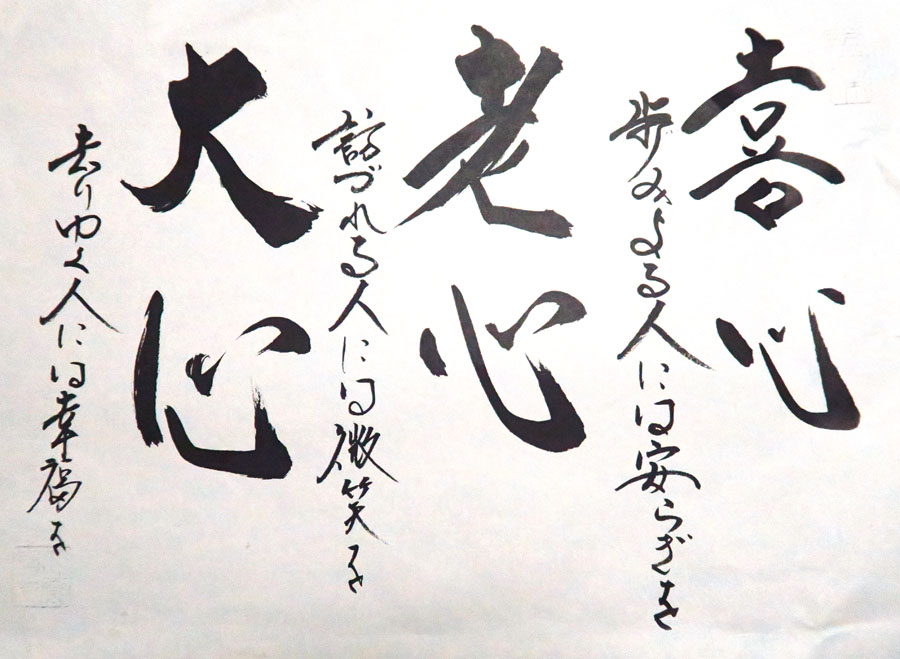 喜心
歩みよる人には安らぎを
老心
訪づれる人には微笑を
大心
去りゆく人には幸福を